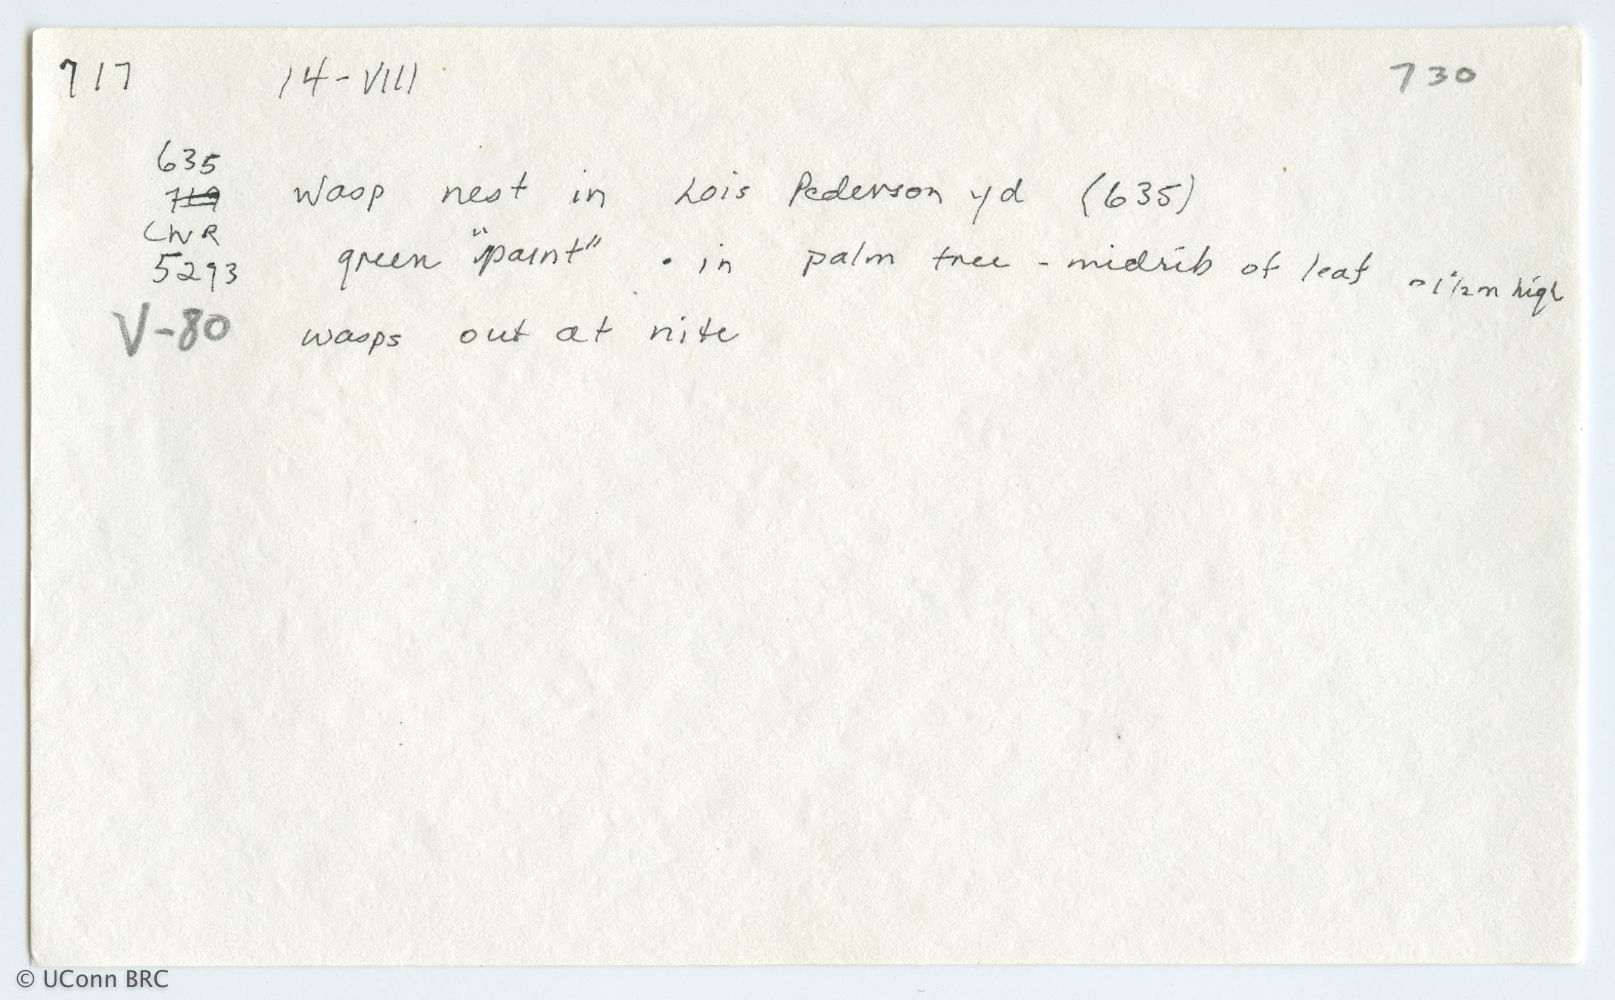 717 14-VIII 730
635
719 Wasp nest in Lois Pederson yd (635)
CWR
5293 green "paint" . in palm tree - midrib of leaf ~1½m high
V-80 wasps out at nite
© UConn BRC